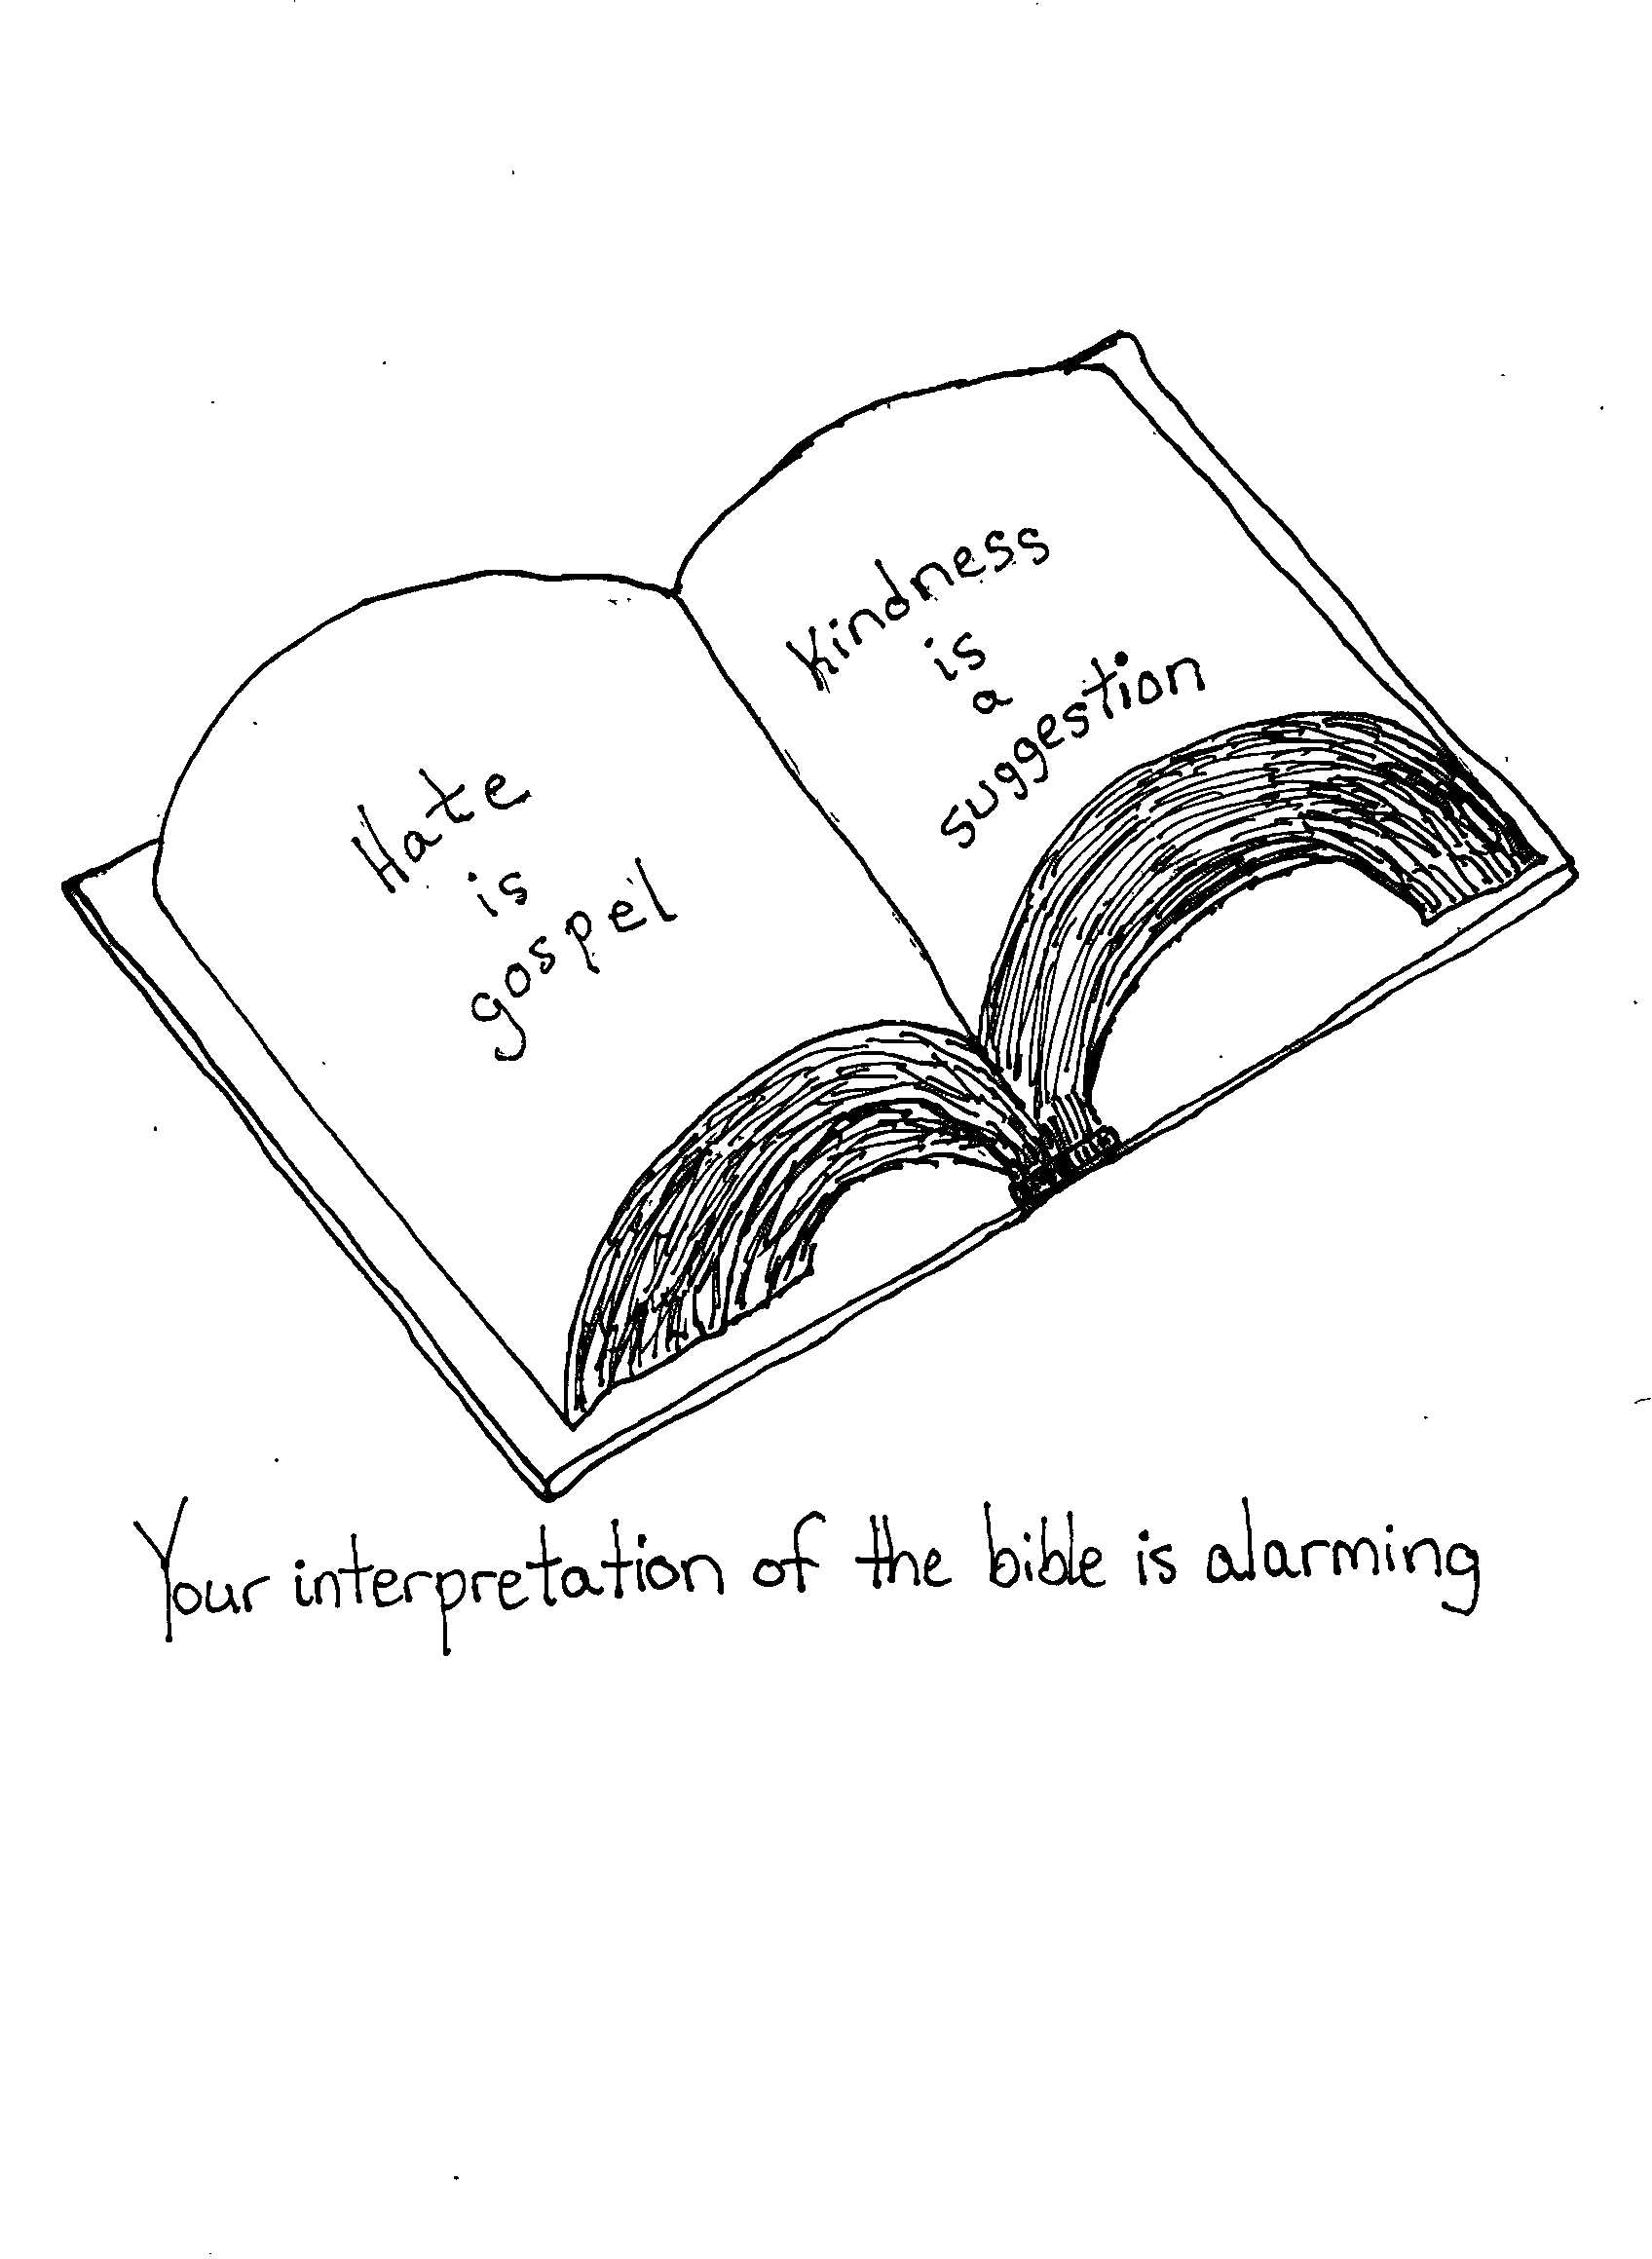 Hate
is
gospel
Kindness
is
a
suggestion
Your interpretation of the bible is alarming